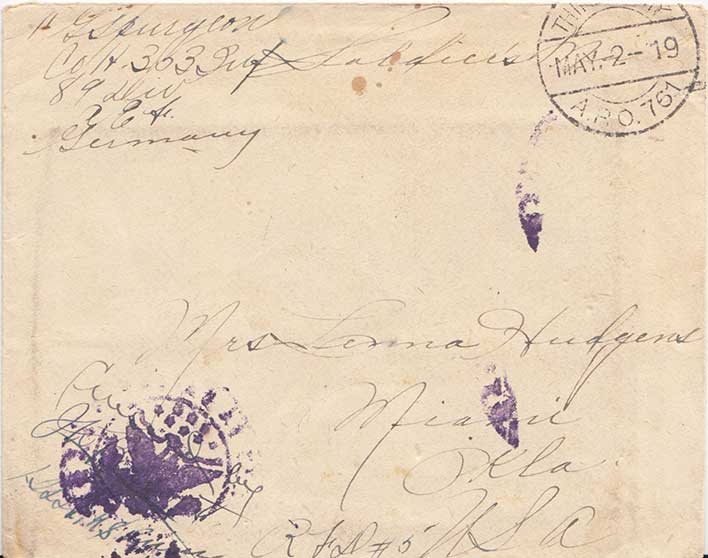 G Spurgeon
Co H 353 Inf Soldier's
89 Div
A.E.F.
Germany
MAY-2-19
A.P.O. 761
Mrs Lenna Hudgens
Miami
Okla
R F D #5 USA